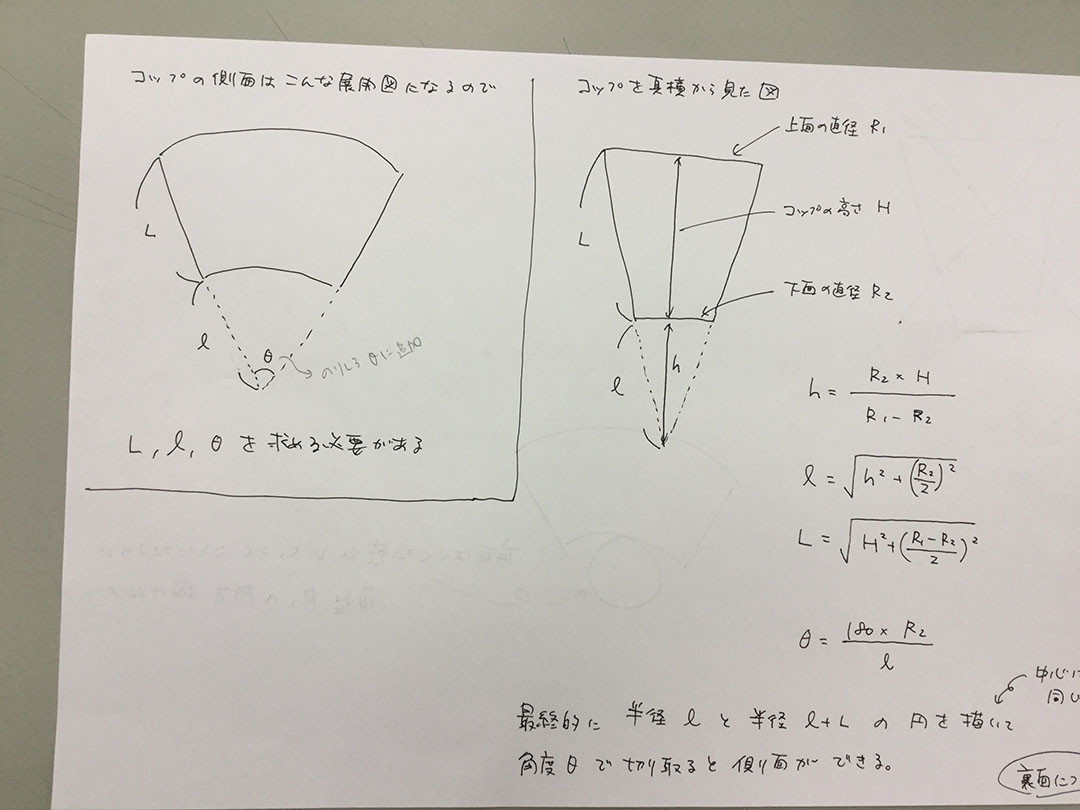 コップの側面はこんな展開図になるので
L
l
θ
のりしろ θに追加
L, l, θ を求める必要がある
コップを真横から見た図
上面の直径 R₁
コップの高さ H
L
下面の直径 R₂
l
h
h = R₂ × H / R₁ - R₂
l = √h² + (R₂/2)²
L = √H² + (R₁-R₂/2)²
θ = 180 × R₂ / l
中心は
同じ
最終的に 半径 l と 半径 l+L の 円を描いて
角度 θ で切り取ると 側面ができる。
裏面につ